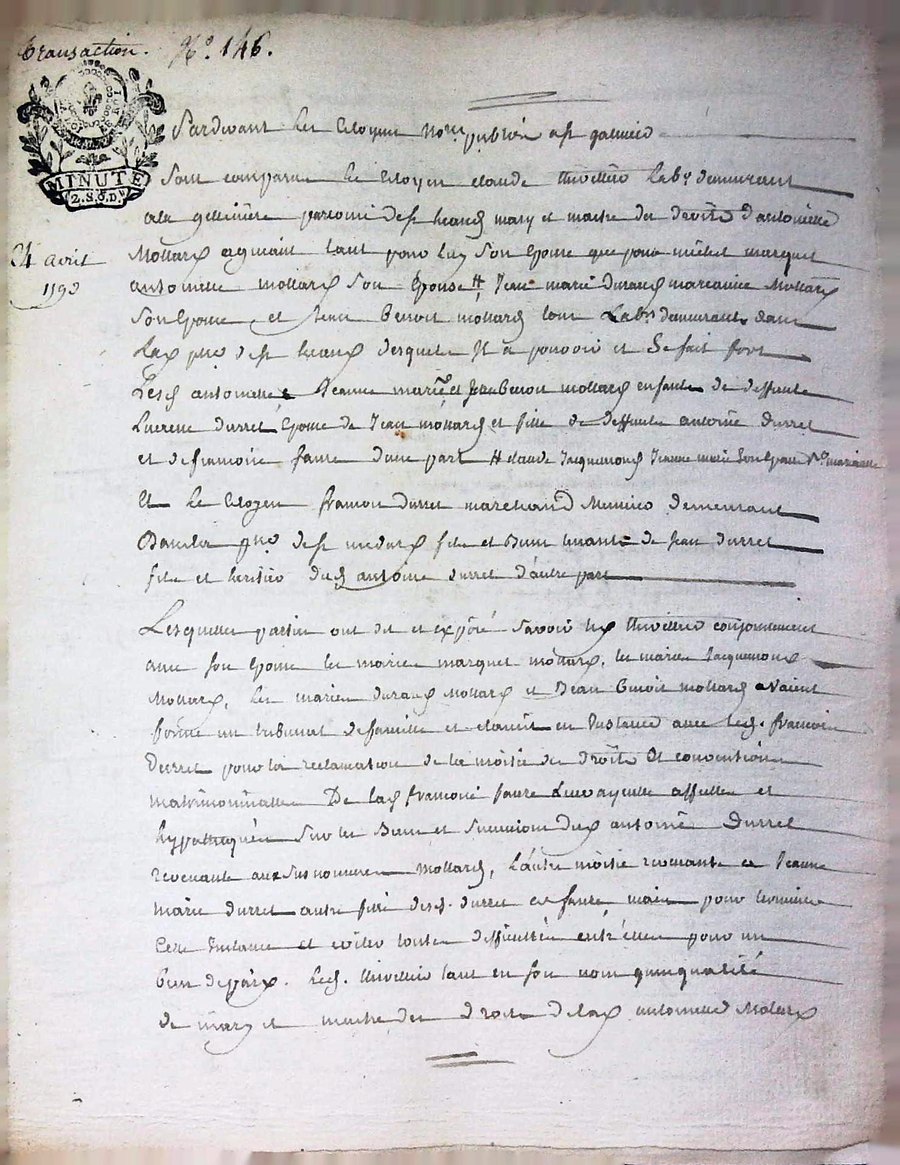 Transaction. No. 146.
LA LOI ET LE ROI
MINUTE
2.S.6.D.
Pardevant les Citoyens Nores publics
Sont comparus le Citoyen claude thivellier Labr demeurant
a la mary et maitre des droits d'antoinette
24 avril
1793
Mottard agissant tant pour luy Son Epouse que pour michel marquet
antoinette mottard Son Epouse # Jean marie Durand marianne Mottard
Son Epouse et Jean Benoit mottard tous Labrs demeurants dans
desquels Il a pouvoir et Se fait fort
Lesd antoinette Jeanne marie et Jean Benoit mottard enfants de deffunte
Lucrece durret Epouse de Jean mottard et fille de deffunts antoine durret
et de francoise faure d'une part # claude Jacquemond Jeanne marie Son Epouse marianne
Et le Citoyen francois durret marchand demeurant
fils et Bien tenants de Jean durret
fils et heritier dud antoine durret d'autre part
Lesquelles parties ont dit et exposé savoir led thivellier conjointement
avec son Epouse les maries marquet mottard, les maries Jacquemond
Mottard, les maries durand Mottard et Jean Benoit mottard avaient
formé un tribunal de famille et etaient en Instance avec led. francois
Durret pour la reclamation de la moitié des droits et conventions
matrimonialles De lad francoise faure Leur ayeulle affectes et
hypothequés sur les Biens et successions dud antoine Durret
revenante aux susnommes mottard, L'autre moitié revenante a Jeanne
marie durret autre fille desd. durret et faure mais pour terminer
cette Instance et eviter toutes difficultés entr'elles pour un
bien de paix. Led. thivellier tant en son nom qu'en qualité
de mary et maitre des droits de lad antoinette Mottard